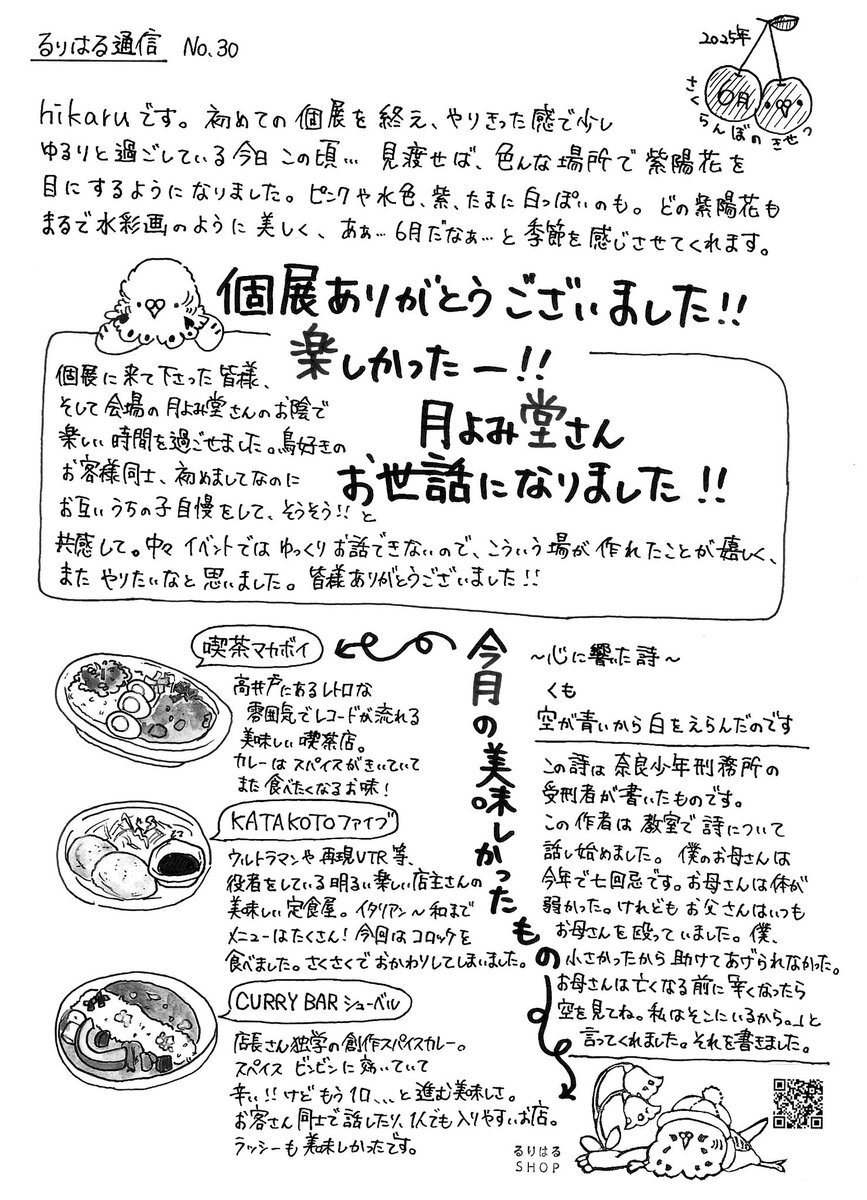 るりはる通信 No.30
2025年
6月
さくらんぼのきせつ
hikaruです。初めての個展を終え、やりきった感で少し
ゆるりと過ごしている今日この頃… 見渡せば、色んな場所で紫陽花を
目にするようになりました。ピンクや水色、紫、たまに白っぽいのも。どの紫陽花も
まるで水彩画のように美しく、あぁ…6月だなぁ…と季節を感じさせてくれます。
個展ありがとうございました!!
楽しかったー!!
月よみ堂さん
お世話になりました!!
個展に来て下さった皆様、
そして会場の月よみ堂さんのお陰で
楽しい時間を過ごせました。鳥好きの
お客様同士、初めましてなのに
お互いうちの子自慢をして、そうそう!!と
共感して。中々イベントではゆっくりお話できないので、こういう場が作れたことが嬉しく、
またやりたいなと思いました。皆様ありがとうございました!!
今月の美味しかったもの
喫茶マカボイ
高井戸にあるレトロな
雰囲気でレコードが流れる
美味しい喫茶店。
カレーはスパイスがきいていて
また食べたくなるお味!
KATAKOTOファイブ
ウルトラマンや再現VTR等、
役者をしている明るい楽しい店主さんの
美味しい定食屋。イタリアン～和まで
メニューはたくさん!今回はコロッケを
食べました。さくさくでおかわりしてしまいました。
CURRY BAR シューベル
店長さん独学の創作スパイスカレー。
スパイスビンビンに効いていて
辛い!!けどもう1口、、、と進む美味しさ。
お客さん同士で話したり、1人でも入りやすいお店。
ラッシーも美味しかったです。
～心に響いた詩～
くも
空が青いから白をえらんだのです
この詩は奈良少年刑務所の
受刑者が書いたものです。
この作者は教室で詩について
話し始めました。僕のお母さんは
今年で七回忌です。お母さんは体が
弱かった。けれどもお父さんはいつも
お母さんを殴っていました。僕、
小さかったから助けてあげられなかった。
お母さんは亡くなる前に「辛くなったら
空を見てね。私はそこにいるから。」と
言ってくれました。それを書きました。
るりはる
SHOP